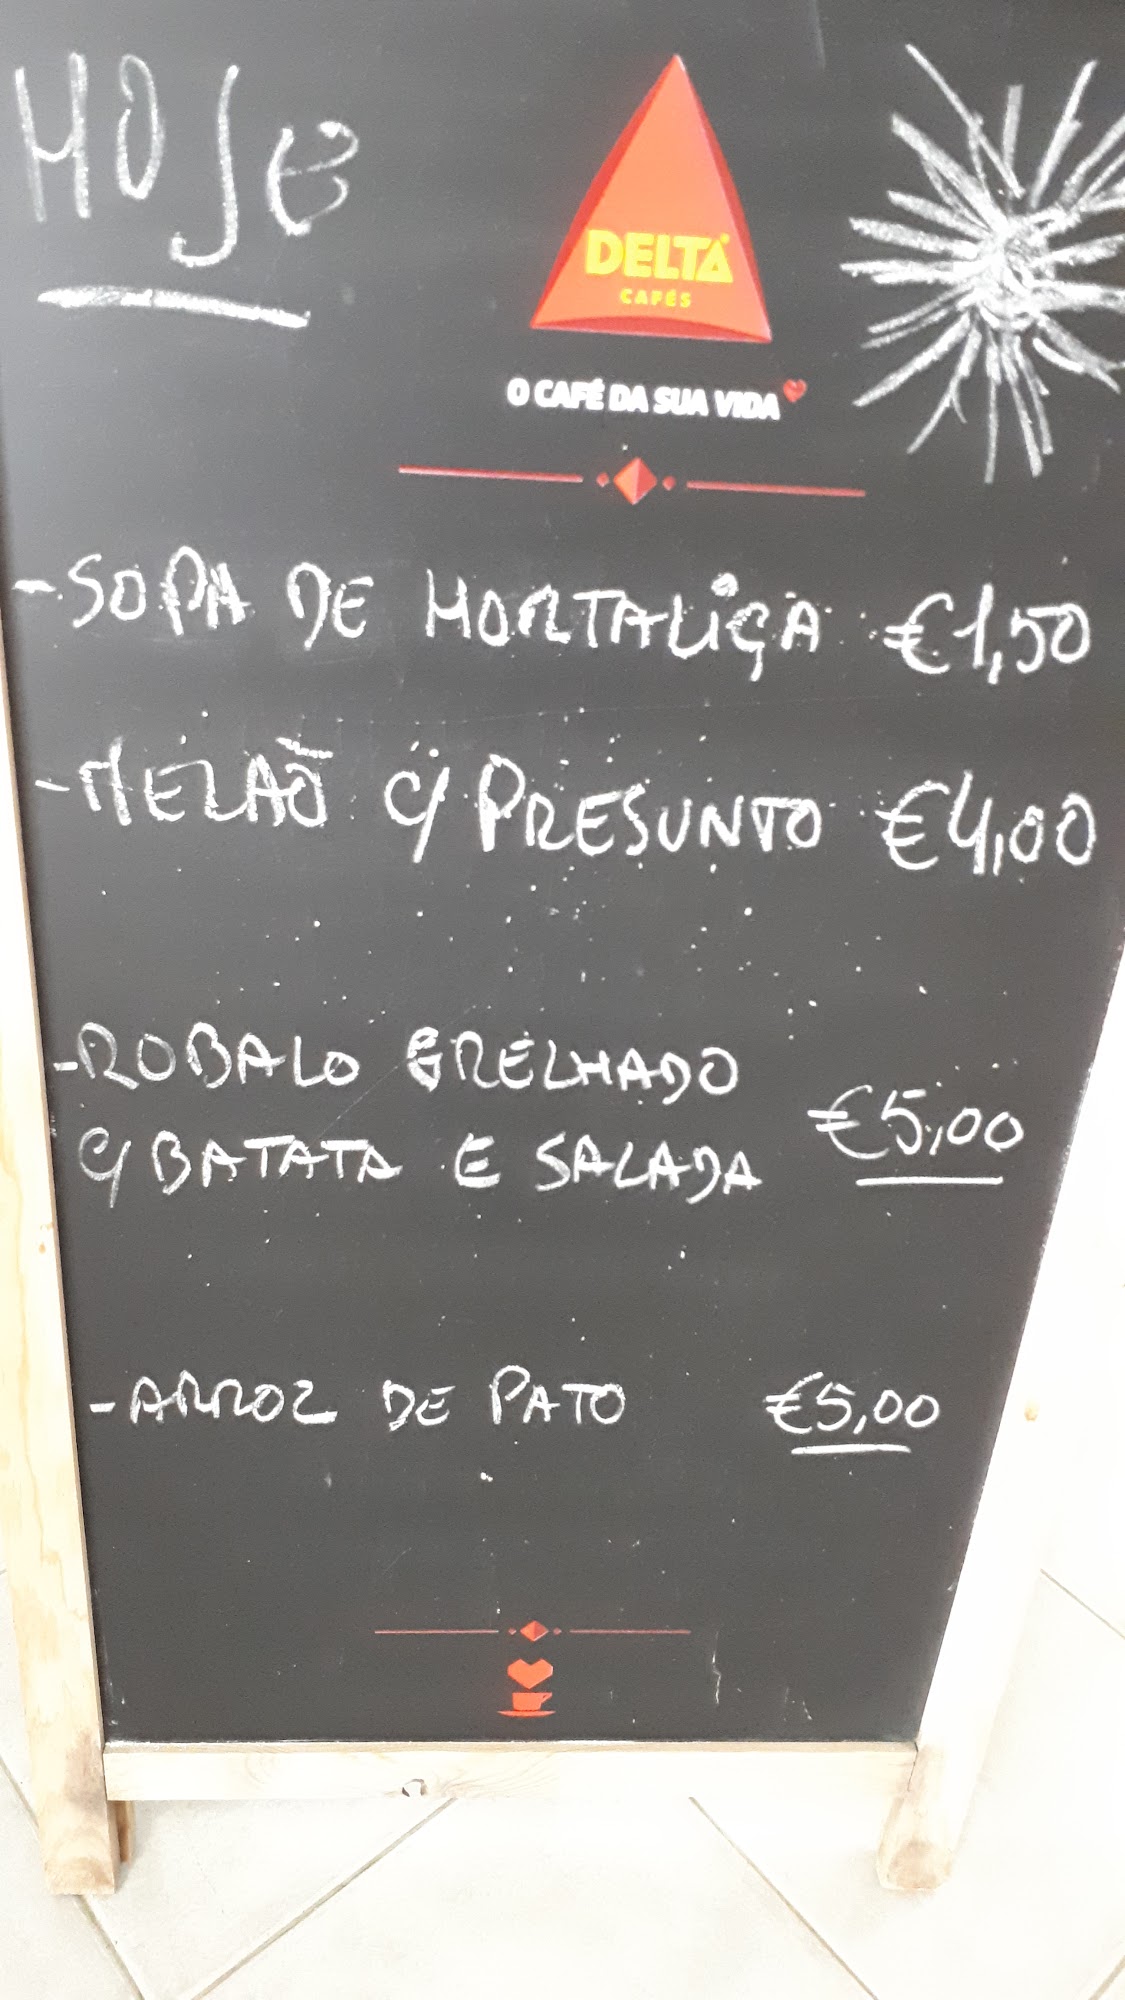 HOJE
DELTA
CAFÉS
O CAFÉ DA SUA VIDA
- SOPA DE HORTALIÇA €1,50
- MELÃO C/ PRESUNTO €4,00
- ROBALO GRELHADO
C/ BATATA E SALADA €5,00
- ARROZ DE PATO €5,00